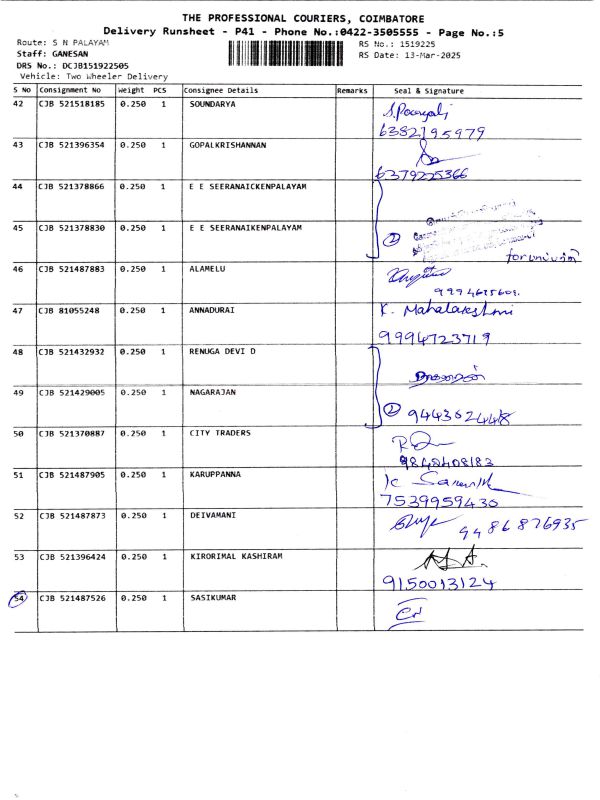 THE PROFESSIONAL COURIERS, COIMBATORE
Delivery Runsheet - P41 - Phone No.:0422-3505555 - Page No.:5
Route: S N PALAYAM
RS No.: 1519225
Staff: GANESAN
RS Date: 13-Mar-2025
DRS No.: DCJB151922505
Vehicle: Two Wheeler Delivery
S No Consignment No Weight PCS Consignee Details Remarks Seal & Signature
42 CJB 521518185 0.250 1 SOUNDARYA
6382195979
43 CJB 521396354 0.250 1 GOPALKRISHANNAN
6379225366
44 CJB 521378866 0.250 1 E E SEERANAICKENPALAYAM
45 CJB 521378830 0.250 1 E E SEERANAIKENPALAYAM
2
46 CJB 521487883 0.250 1 ALAMELU
47 CJB 81055248 0.250 1 ANNADURAI K. Mahalakshmi
9994723719
48 CJB 521432932 0.250 1 RENUGA DEVI D
49 CJB 521429005 0.250 1 NAGARAJAN
2
50 CJB 521370887 0.250 1 CITY TRADERS
51 CJB 521487905 0.250 1 KARUPPANNA
7539959430
52 CJB 521487873 0.250 1 DEIVAMANI
9486876935
53 CJB 521396424 0.250 1 KIRORIMAL KASHIRAM
9150013124
54 CJB 521487526 0.250 1 SASIKUMAR